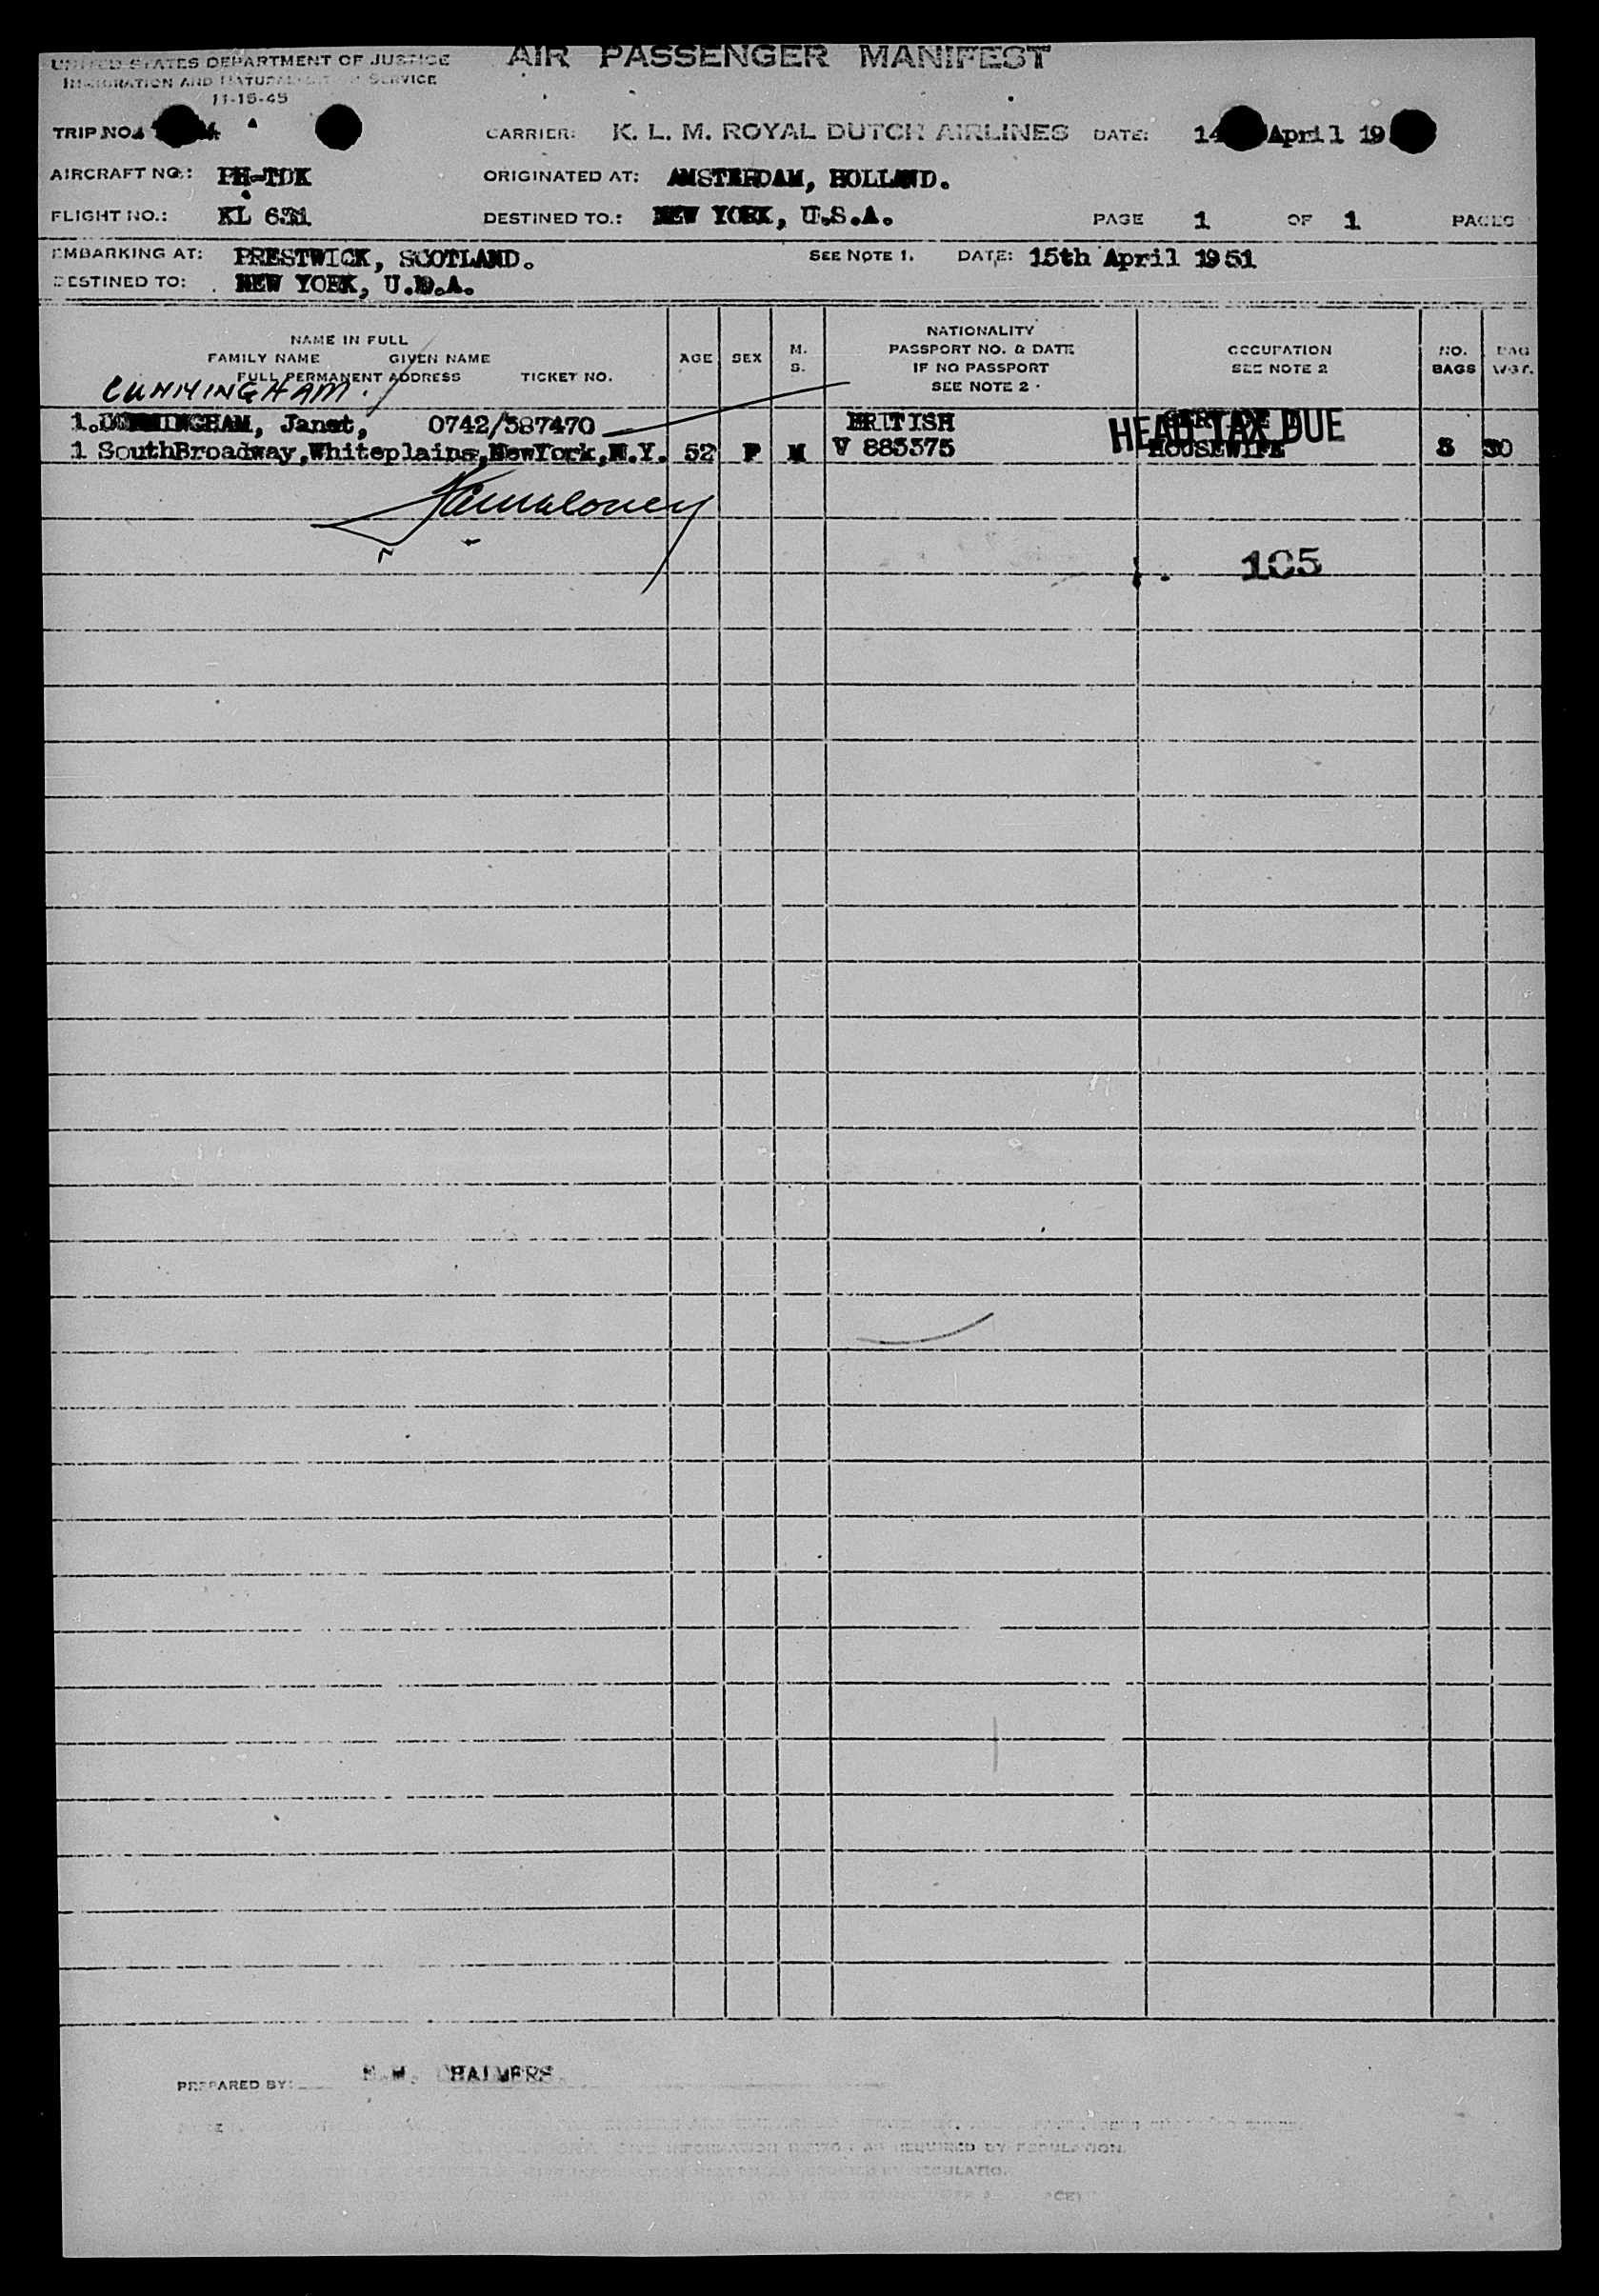 AIR PASSENGER MANIFEST
UNITED STATES DEPARTMENT OF JUSTICE
IMMIGRATION AND NATURALIZATION SERVICE
11-15-45
TRIP NO. CARRIER: K. L. M. ROYAL DUTCH AIRLINES DATE: 14 April 19
AIRCRAFT NO.: PH-TDK ORIGINATED AT: AMSTERDAM, HOLLAND.
FLIGHT NO.: KL 631 DESTINED TO.: NEW YORK, U.S.A. PAGE 1 OF 1 PAGES
EMBARKING AT: PRESTWICK, SCOTLAND. SEE NOTE 1. DATE: 15th April 1951
DESTINED TO: NEW YORK, U.S.A.
NAME IN FULL
FAMILY NAME GIVEN NAME
FULL PERMANENT ADDRESS TICKET NO.
AGE SEX M. S.
NATIONALITY
PASSPORT NO. & DATE
IF NO PASSPORT
SEE NOTE 2
OCCUPATION
SEE NOTE 2
NO. BAGS
BAG WGT.
CUNNINGHAM.
1. CUNNINGHAM, Janet, 0742/387470 BRITISH
HEAD TAX DUE
1 SouthBroadway,Whiteplains,NewYork,N.Y. 52 F M V 883375 HOUSEWIFE 3 30
105
PREPARED BY: CHALMERS
INFORMATION AS REQUIRED BY REGULATION.